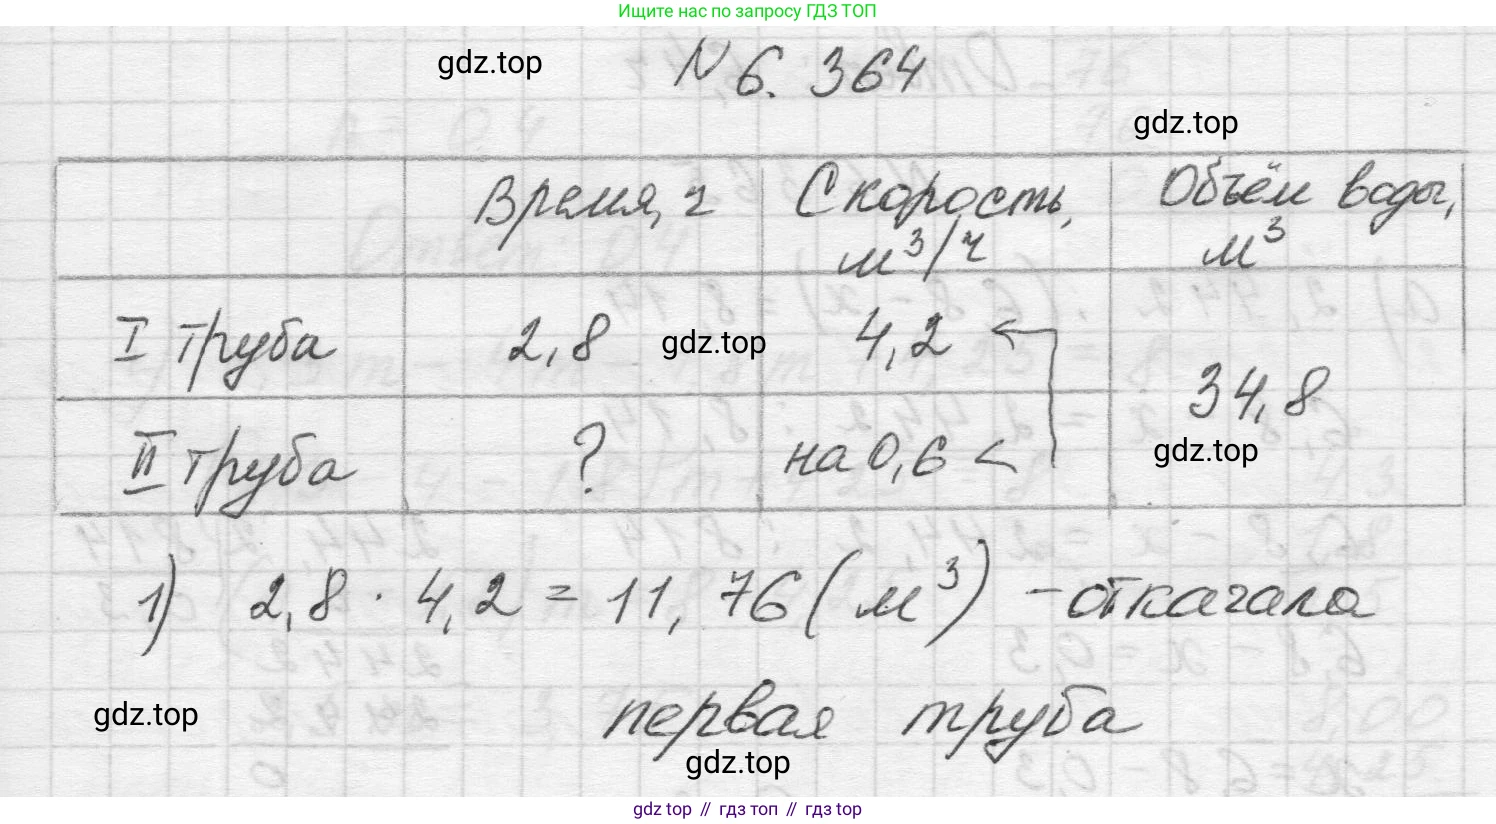 Ищите нас по запросу ГДЗ ТОП
gdz.top
N 6. 364
gdz.top
Время, ч
Скорость, м³/ч
Объём воды, м³
I труба 2,8 gdz.top 4,2
34,8
II труба ? на 0,6 <
gdz.top
1) 2,8 · 4,2 = 11,76 (м³) - откачала
gdz.top
первая труба
gdz.top
gdz top // гдз топ // gdz top